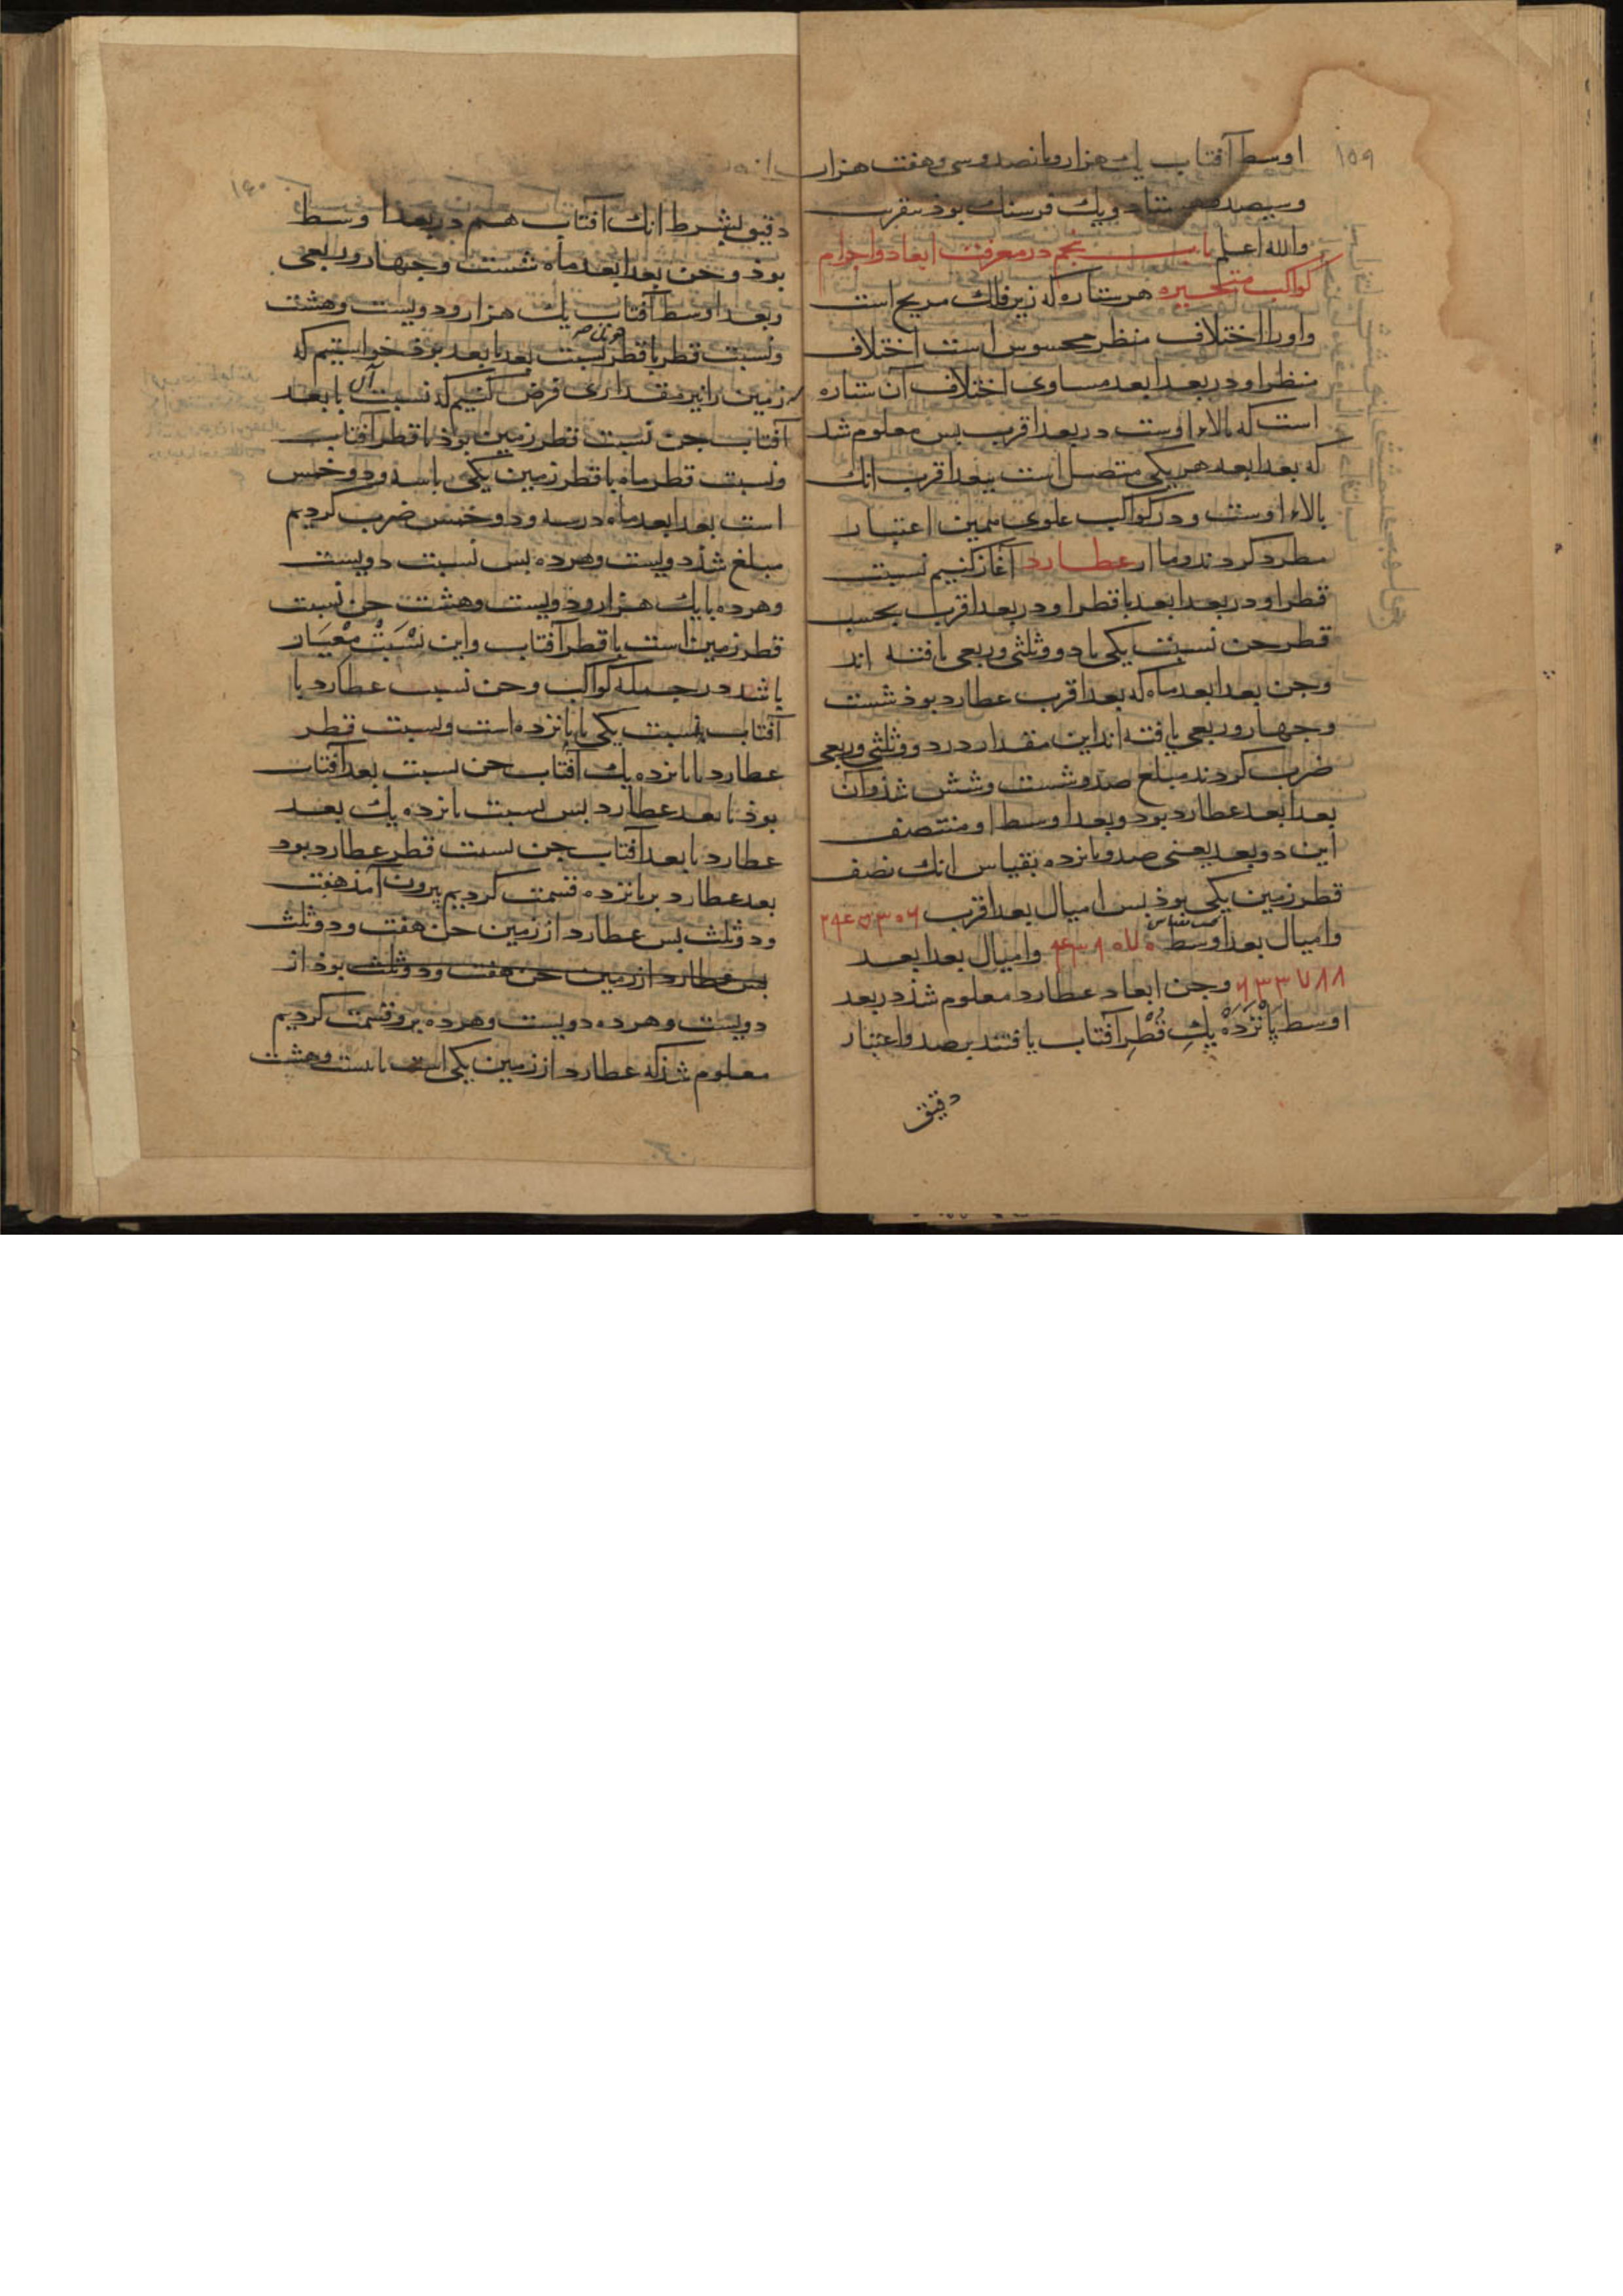 ١٥٩
اوسط آفتاب یك هزار و پانصد و سی و هفت هزار
وسیصد و هشتاد و یك فرسنك بوذ بتقریب
والله اعلم باب پنجم در معرفت ابعاد و اجرام
كواكب متحیره هر ستاره كه زیر فلك مریخ است
و او را اختلاف منظر محسوس است اختلاف
منظر او در بعد ابعد مساوی اختلاف آن ستاره
است كه بالاء اوست در بعد اقرب بس معلوم شد
كه بعد ابعد هر یكی متصل است ببعد اقرب انك
بالاء اوست و در كواكب علوی همین اعتبار
مطرد كردند و ما از عطارد آغاز كنیم نسبت
قطر او در بعد ابعد با قطر او در بعد اقرب بحسب
قطر جن نسبت یكی با دو و ثلثی و ربعی یافته اند
وجن بعد ابعد ماه كه بعد اقرب عطارد بوذ شست
و جهار و ربعی یافته اند این مقدار در دو و ثلثی و ربعی
ضرب كردند مبلغ صد و شست و شش شذ و آن
بعد ابعد عطارد بود و بعد اوسط او منتصف
این دو بعد یعنی صد و پانزده بقیاس انك نصف
قطر زمین یكی بوذ بس امیال بعد اقرب
و امیال بعد اوسط و امیال بعد ابعد
٦٣٣٧٨٨ وجن ابعاد عطارد معلوم شذ در بعد
اوسط پانْزْدَهْ یكِ قُطْرِ آفتاب یافتند برصد و اعتبار
دقیق
١٦٠
دقیق بشرط انك آفتاب هم در بعد اوسط
بوذ وجن بعد ابعد ماه شست و جهار و ربعی
و بعد اوسط آفتاب یك هزار و دویست و هشت
و نسبت قطر با قطر نسبت بعد با بعد بوذ خواستیم كه
زمین را نیز مقداری فرض كنیم كه نسبت آن با بعد
آفتاب جن نسبت قطر زمین بوذ با قطر آفتاب
و نسبت قطر ماه با قطر زمین یكی با سه و دو خمس
است بعد ابعد ماه در سه و دو خمس ضرب كردیم
مبلغ شذ دویست و هرده بس نسبت دویست
و هرده با یك هزار و دویست و هشت جن نسبت
قطر زمین است با قطر آفتاب و این نسْبَتْ مِعْیَار
باشد در جمله كواكب وجن نسبت عطارد با
آفتاب نسبت یكی با پانزده است و نسبت قطر
عطارد با پانزده یك آفتاب جن نسبت بعد آفتاب
بوذ با بعد عطارد بس نسبت پانزده یك بعد
عطارد با بعد آفتاب جن نسبت قطر عطارد بود
بعد عطارد بر پانزده قسمت كردیم بیرون آمذ هفت
و دو ثلث بس عطارد از زمین جن هفت و دو ثلث
بس عطارد از زمین جن هفت و دو ثلث بوذ از
دویست و هرده دویست و هرده برو قسمت كردیم
معلوم شذ كه عطارد از زمین یكی است با بیست و هشت